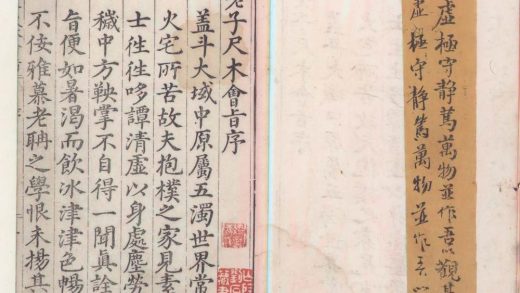 虛極守静篤萬物並作吾以觀其
虛極守静篤萬物並作吾以
老子尺木會旨序
蓋斗大域中原屬五濁世界常
火宅所苦故夫抱樸之家見素
士徃徃哆譚清虛以身處塵勞
穢中方鞅掌不自得一聞真詮
旨便如暑渴而飲冰津津色暢
不佞雅慕老聃之學恨未揚其